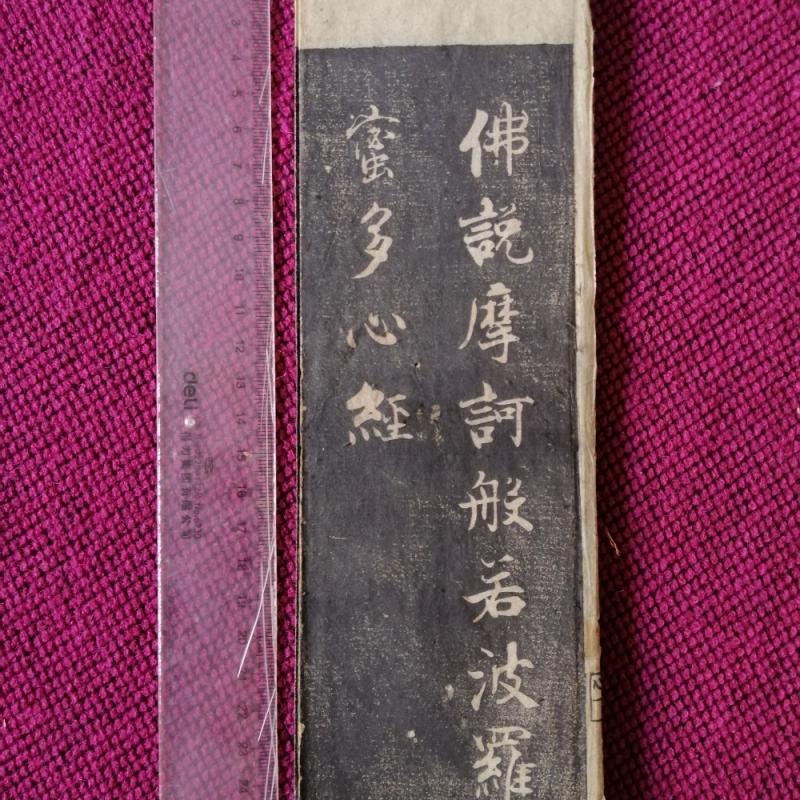 佛說摩訶般若波羅
蜜多心經
deli
3
4
5
6
7
8
9
10
11
12
13
14
15
16
17
18
19
20
22
23
24